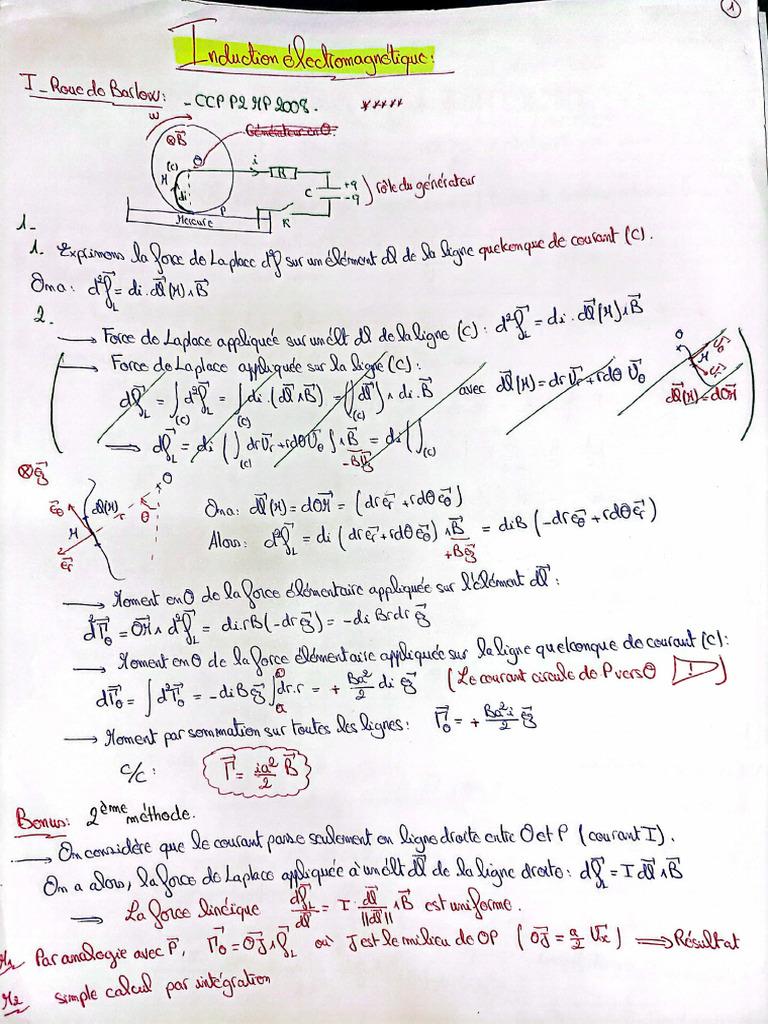 1
Induction électromagnétique:
I_ Roue de Barlow: - CCP P2 MP 2008. *****
ω
⊗B⃗
Générateur en O.
(C) O i R
M di C +q -q } rôle du générateur
P K
Mercure
1_
1. Exprimons la force de Laplace d²f⃗ sur un élément dl⃗ de la ligne quelconque de courant (C).
On a: d²f⃗_L = di.dl⃗(M)∧B⃗
2.
→ Force de Laplace appliquée sur un élt dl⃗ de la ligne (C): d²f⃗_L = di.dl⃗(M)∧B⃗
→ Force de Laplace appliquée sur la ligne (C):
df⃗_L = ∫_(C) d²f⃗_L = ∫_(C) di.(dl⃗∧B⃗) = (∫_(C) dl⃗)∧di.B⃗ avec dl⃗(M) = dr U⃗r + rdθ U⃗θ
O M dl⃗(M) = dOM⃗
→ df⃗_L = di (∫_(C) dr U⃗r + rdθ U⃗θ)∧B⃗ = di(∫_(C)
⊗ e⃗z
O e⃗θ dl⃗(M) r θ M e⃗r
On a: dl⃗(M) = dOM⃗ = (dr e⃗r + rdθ e⃗θ)
Alors: d²f⃗_L = di (dr e⃗r + rdθ e⃗θ)∧B⃗ = diB(-dr e⃗θ + rdθ e⃗r)
+B e⃗z
→ Moment en O de la force élémentaire appliquée sur l'élément dl⃗:
d²Γ⃗o = OM⃗∧d²f⃗_L = di.rB(-dr e⃗z) = -di Brdr e⃗z
→ Moment en O de la force élémentaire appliquée sur la ligne quelconque de courant (C):
dΓ⃗o = ∫d²Γ⃗o = -diB e⃗z ∫_a^0 dr.r = + Ba²/2 di e⃗z (Le courant circule de P vers O !)
→ Moment par sommation sur toutes les lignes: Γ⃗o = + Ba²i/2 e⃗z
c/c: Γ⃗ = ia²/2 B⃗
Bonus: 2ème méthode.
→ On considère que le courant passe seulement en ligne droite entre O et P (courant I).
On a alors, la force de Laplace appliquée à un élt dl⃗ de la ligne droite: df⃗_L = I dl⃗∧B⃗
→ La force linéique df⃗_L/dl = I. dl⃗/||dl⃗|| ∧B⃗ est uniforme.
M1 Par analogie avec P⃗, Γ⃗o = OJ⃗∧f⃗_L où J est le milieu de OP (OJ⃗ = a/2 U⃗x) ⟹ Résultat
M2 simple calcul par intégration